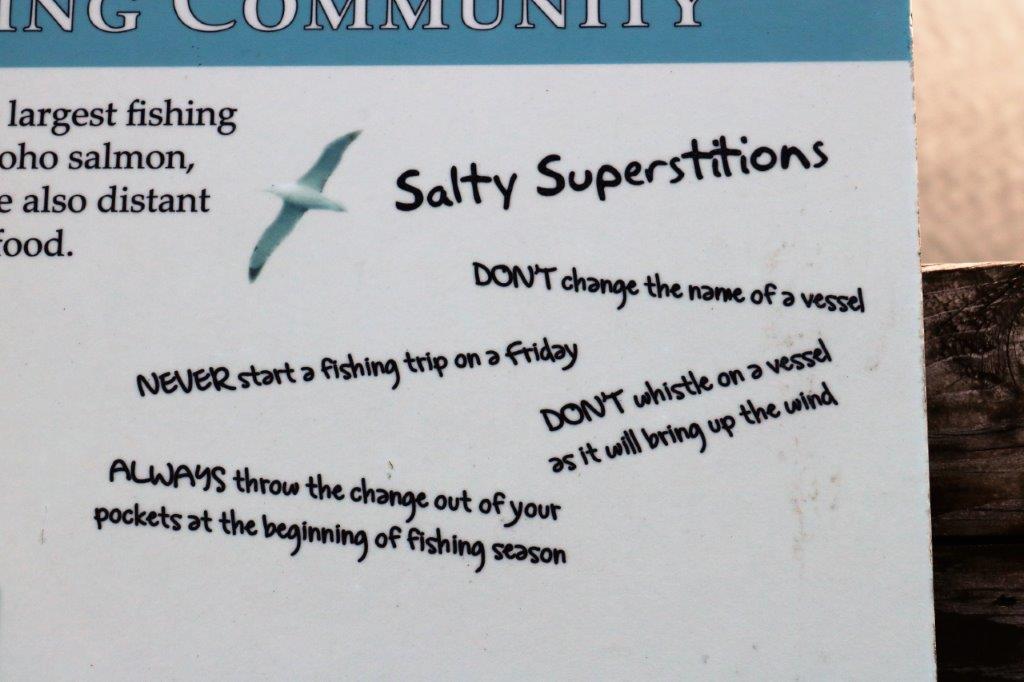 ING COMMUNITY
largest fishing
oho salmon,
e also distant
food.
Salty Superstitions
DON'T change the name of a vessel
NEVER start a fishing trip on a Friday
DON'T whistle on a vessel
as it will bring up the wind
ALWAYS throw the change out of your
pockets at the beginning of fishing season